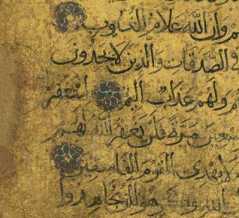 م وان الله علام الغيوب
في الصدقات والذين لا يجدون
م ولهم عذاب اليم استغفر
سبعين مرة فلن يغفر الله لهم
يهدي القوم الفاسقين
الله ان يجاهدوا